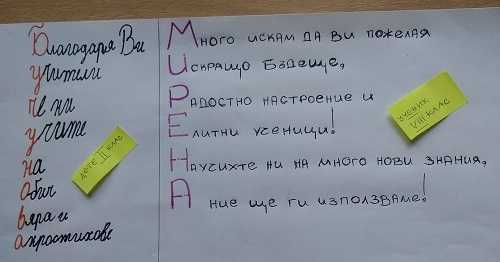 Благодаря Ви
учители
Че ни
учите
на
обич
вяра и
акростихове
дете II клас
Много искам да Ви пожелая
Искращо бъдеще,
Радостно настроение и
Елитни ученици!
Научихте ни на много нови знания,
А ние ще ги използваме!
ученик
VIII клас